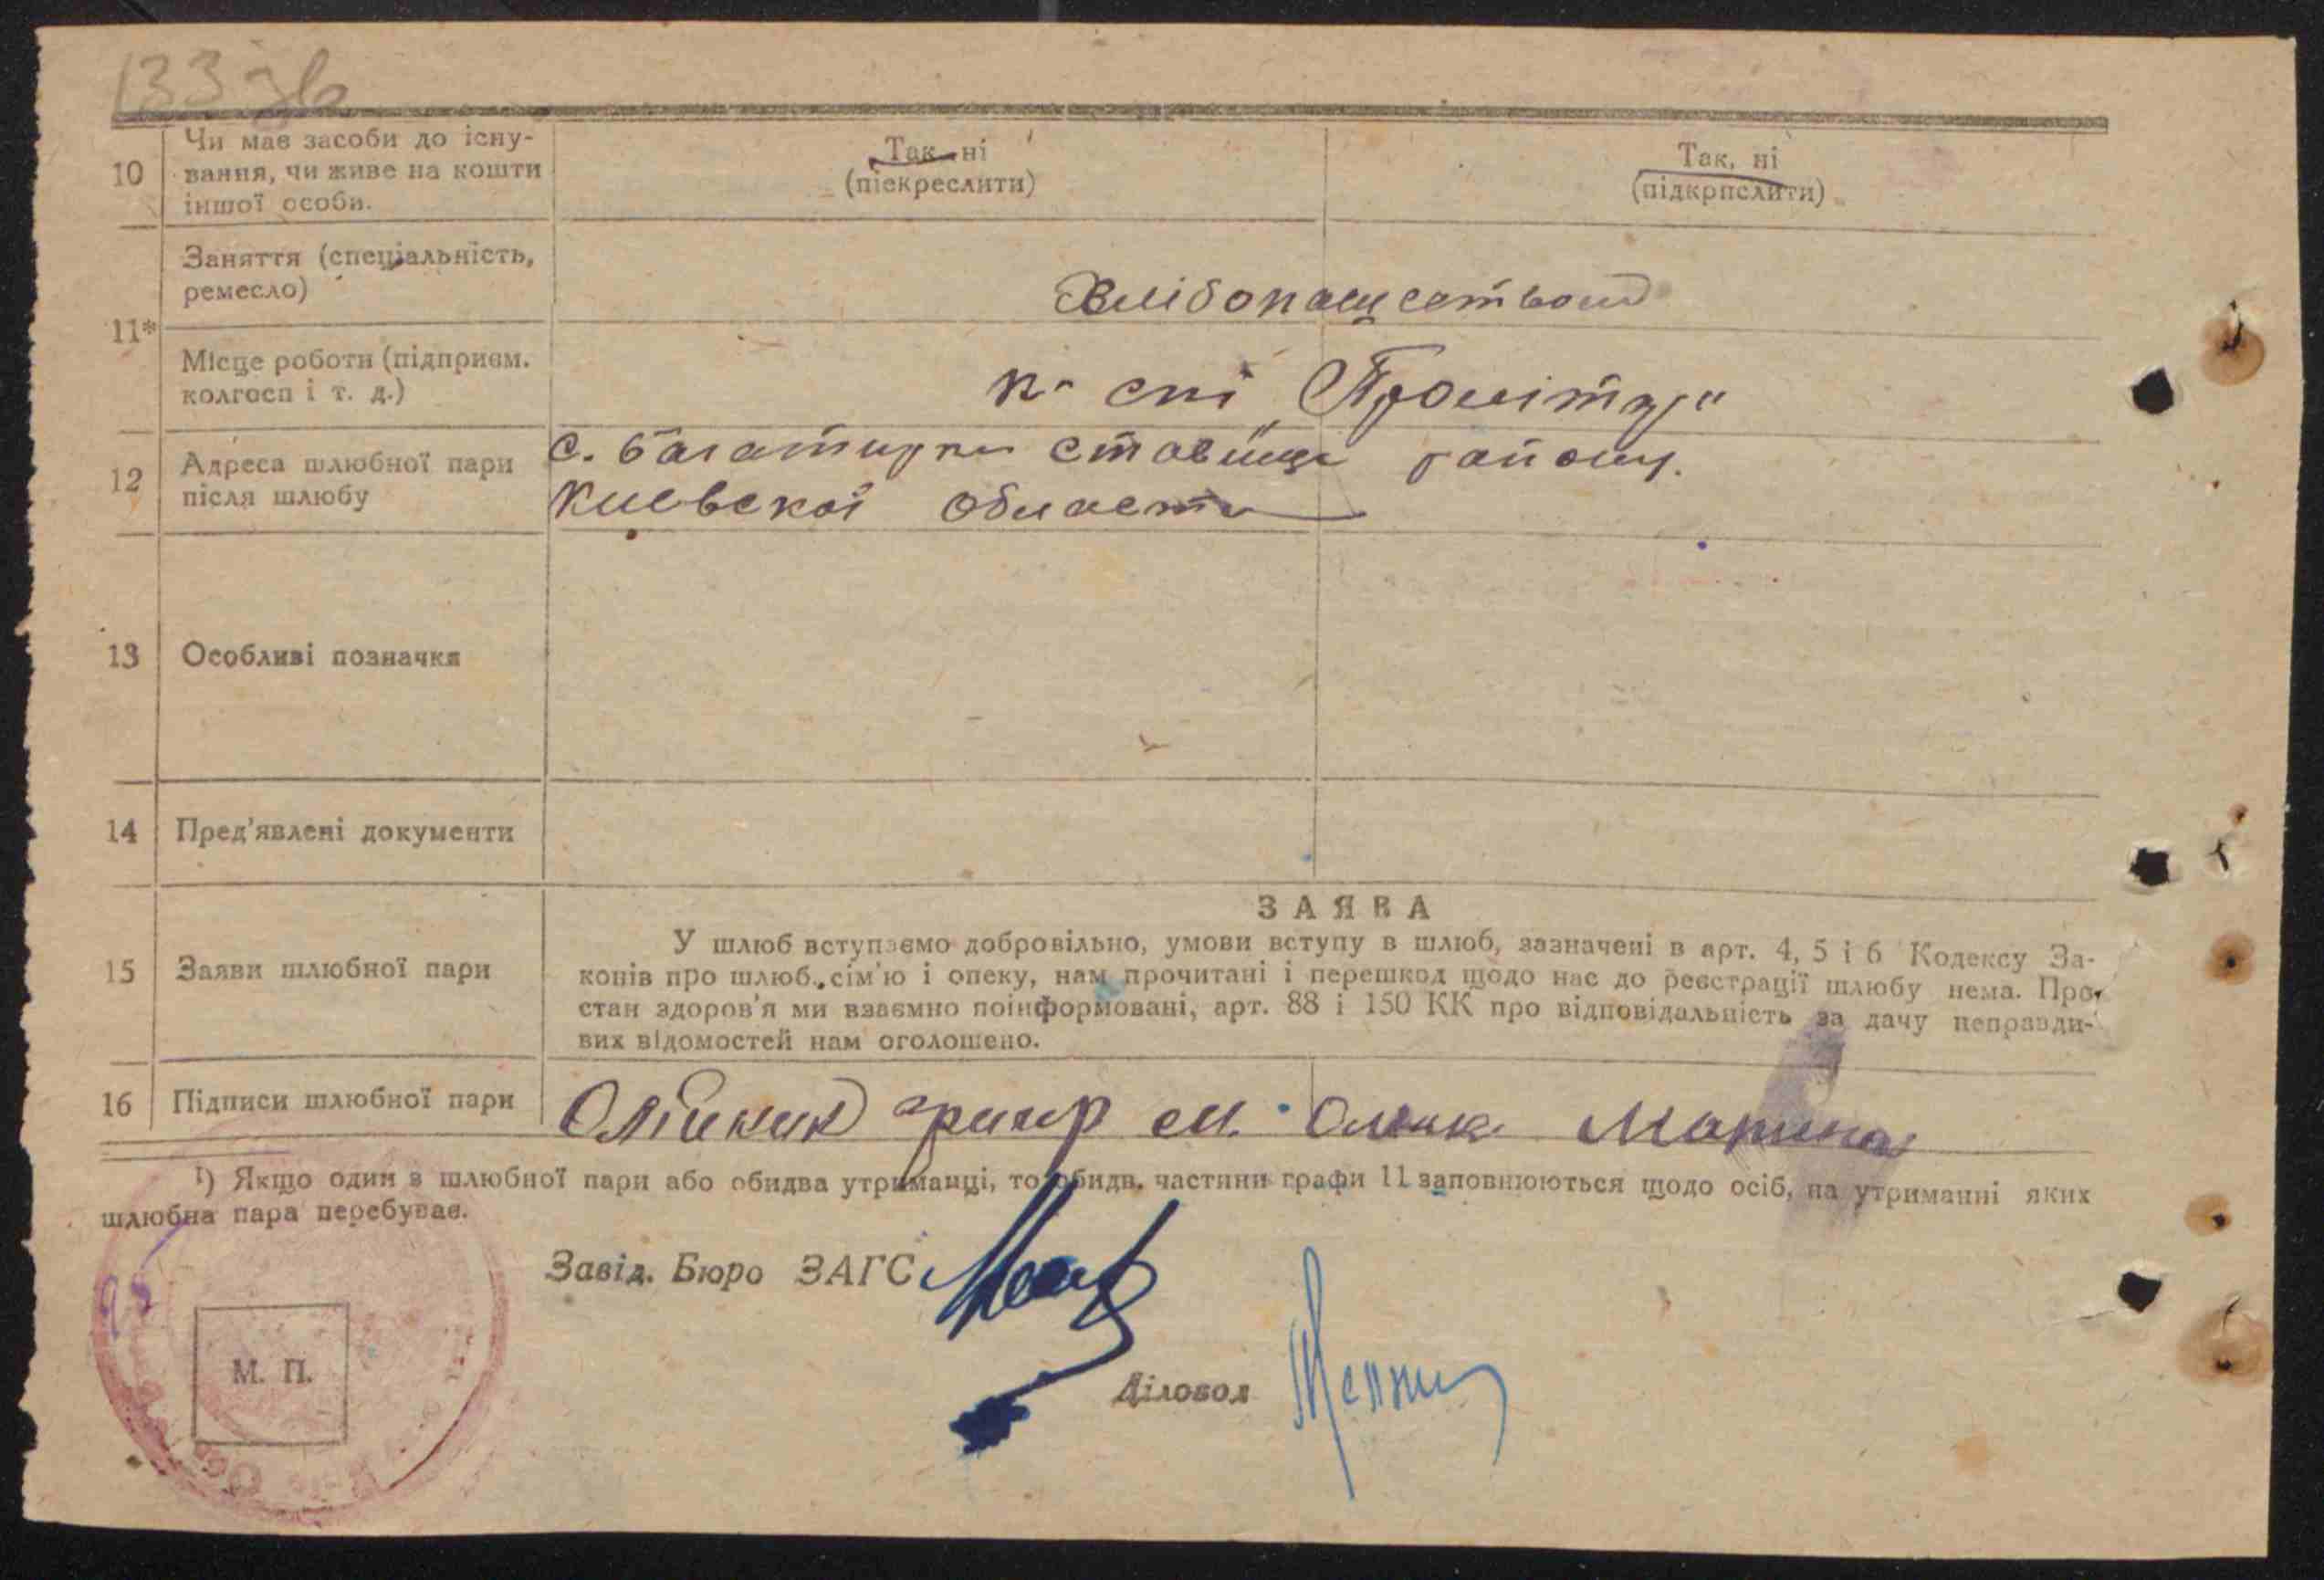 133 зв
10 Чи має засоби до існу-
вання, чи живе на кошти
іншої особи.
Так, ні
(піекреслити)
Так, ні
(підкрпслити)
11* Заняття (спеціальність,
ремесло)
Хлібопашеством
Місце роботи (підприєм.
колгосп і т. д.)
"Промітэр"
12 Адреса шлюбної пари
після шлюбу
с. багатирка ставищ району.
Киевскої области
13 Особливі позначки
14 Пред'явлені документи
ЗАЯВА
15 Заяви шлюбної пари
У шлюб вступаємо добровільно, умови вступу в шлюб, зазначені в арт. 4, 5 і 6 Кодексу За-
конів про шлюб, сім'ю і опеку, нам прочитані і перешкод щодо нас до реєстрації шлюбу нема. Про
стан здоров'я ми взаємно поінформовані, арт. 88 і 150 КК про відповідальність за дачу неправди-
вих відомостей нам оголошено.
16 Підписи шлюбної пари
Олійник м. Марина
1) Якщо один з шлюбної пари або обидва утриманці, то обидв. частини графи 11 заповнюються щодо осіб, на утриманні яких
шлюбна пара перебуває.
Завід. Бюро ЗАГС
М. П.
Діловод